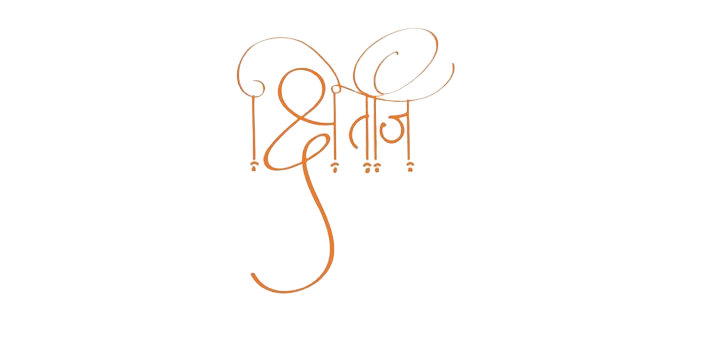 क्षितीज